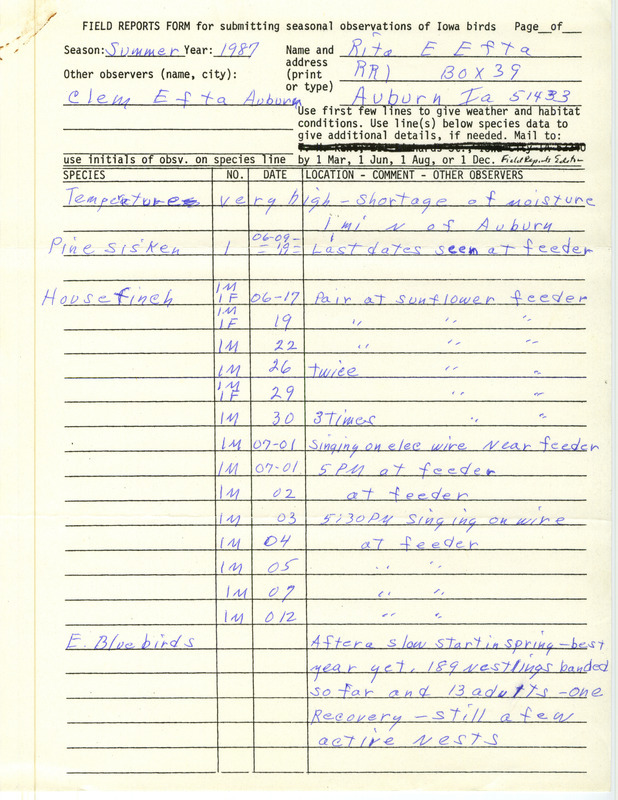 FIELD REPORTS FORM for submitting seasonal observations of Iowa birds Page__of__
Season: Summer Year: 1987 Name and Rita E Efta
address RR1 BOX 39
Other observers (name, city): (print
or type) Auburn Ia 51433
Clem Efta Auburn
Use first few lines to give weather and habitat
conditions. Use line(s) below species data to
give additional details, if needed. Mail to:
use initials of obsv. on species line by 1 Mar, 1 Jun, 1 Aug, or 1 Dec. Field Reports Editor
SPECIES NO. DATE LOCATION - COMMENT - OTHER OBSERVERS
Temperatures very high - shortage of moisture
1 mi N of Auburn
06-09-
Pine Sisken 1 = 19 = Last dates seen at feeder
1M
House finch 1F 06-17 Pair at sunflower feeder
1M
1F 19 " " "
1M 22 " " "
1M 26 twice " "
1M
1F 29 " "
1M 30 3 times " "
1M 07-01 Singing on elec wire near feeder
1M 07-01 5 PM at feeder
1M 02 at feeder
1M 03 5:30 PM Singing on wire
1M 04 at feeder
1M 05 " "
1M 07 " "
1M 012 " "
E. Bluebirds After a slow start in spring - best
year yet. 189 nestlings banded
so far and 13 adults - one
Recovery - still a few
active nests